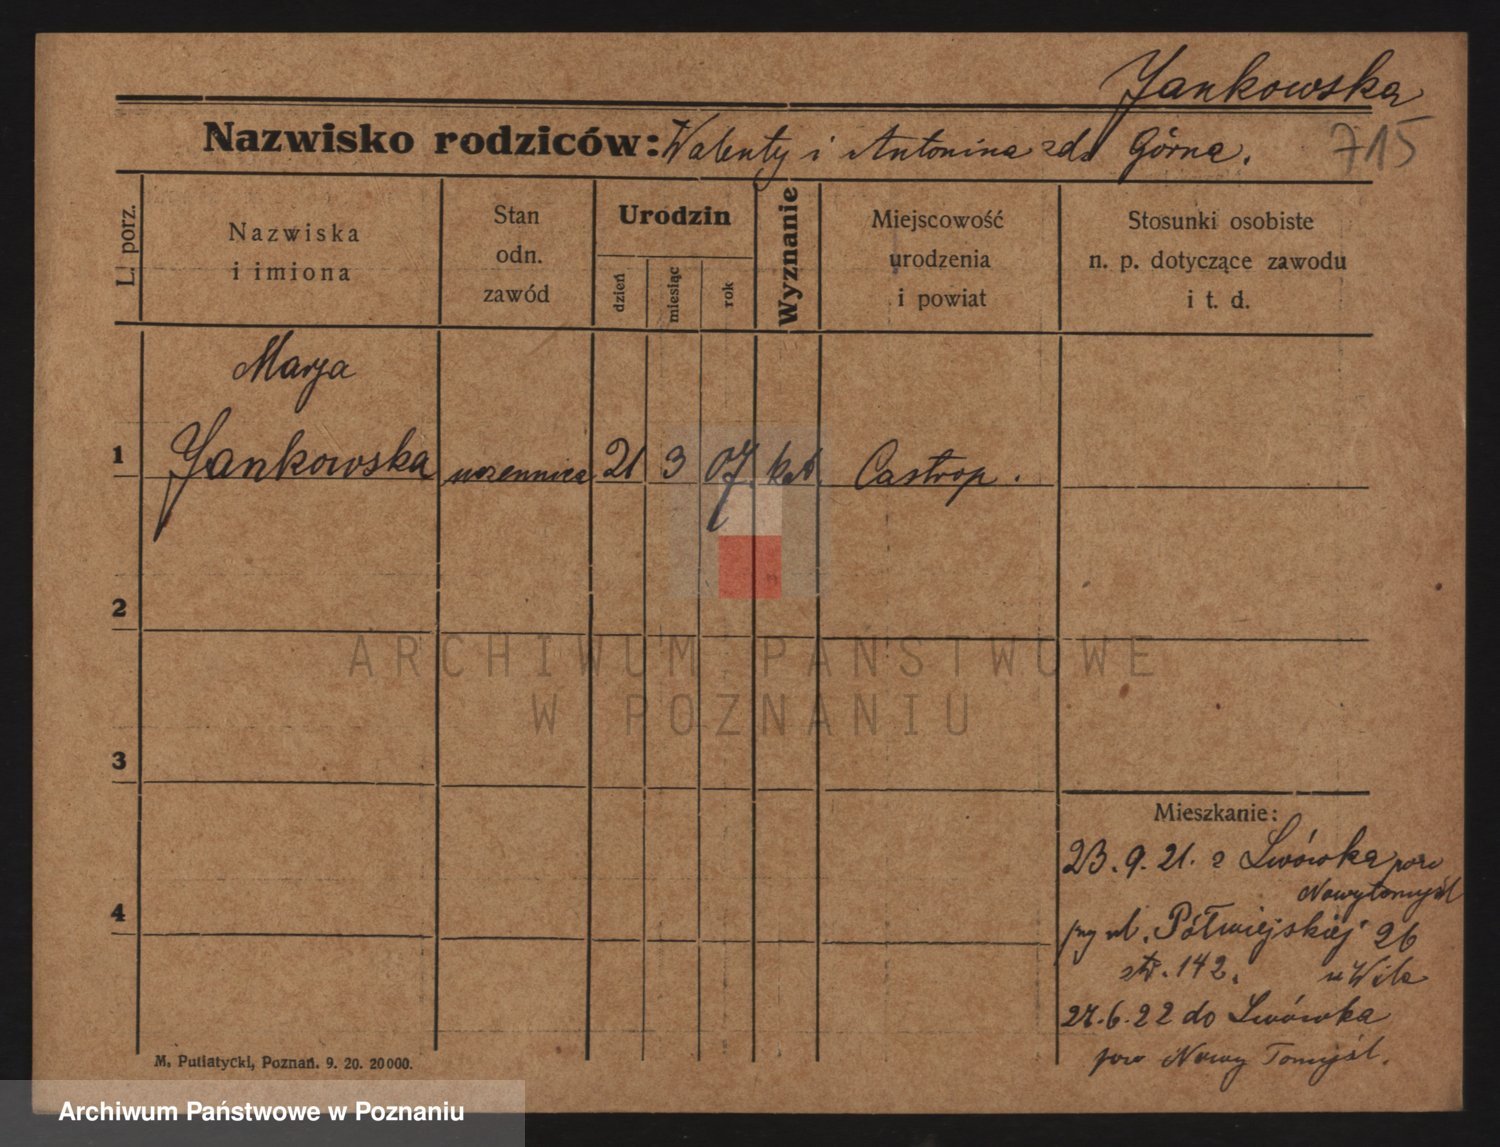 Jankowska
Nazwisko rodziców: Walenty i Antonina zd. Górna.
715
L. porz.
Nazwiska
i imiona
Stan
odn.
zawód
Urodzin
dzień
miesiąc
rok
Wyznanie
Miejscowość
urodzenia
i powiat
Stosunki osobiste
n. p. dotyczące zawodu
i t. d.
Marja
1 Jankowska uczennica 21 3 07 kat. Castrop.
2
ARCHIWUM PAŃSTWOWE
W POZNANIU
3
Mieszkanie:
23.9.21. z Lwówka pow
Nowytomyśl
4
przy ul. Półwiejskiej 26
str. 142. u Wila
27.6.22 do Lwówka
pow Nowy Tomyśl.
M. Putiatycki, Poznań. 9. 20. 20000.
Archiwum Państwowe w Poznaniu